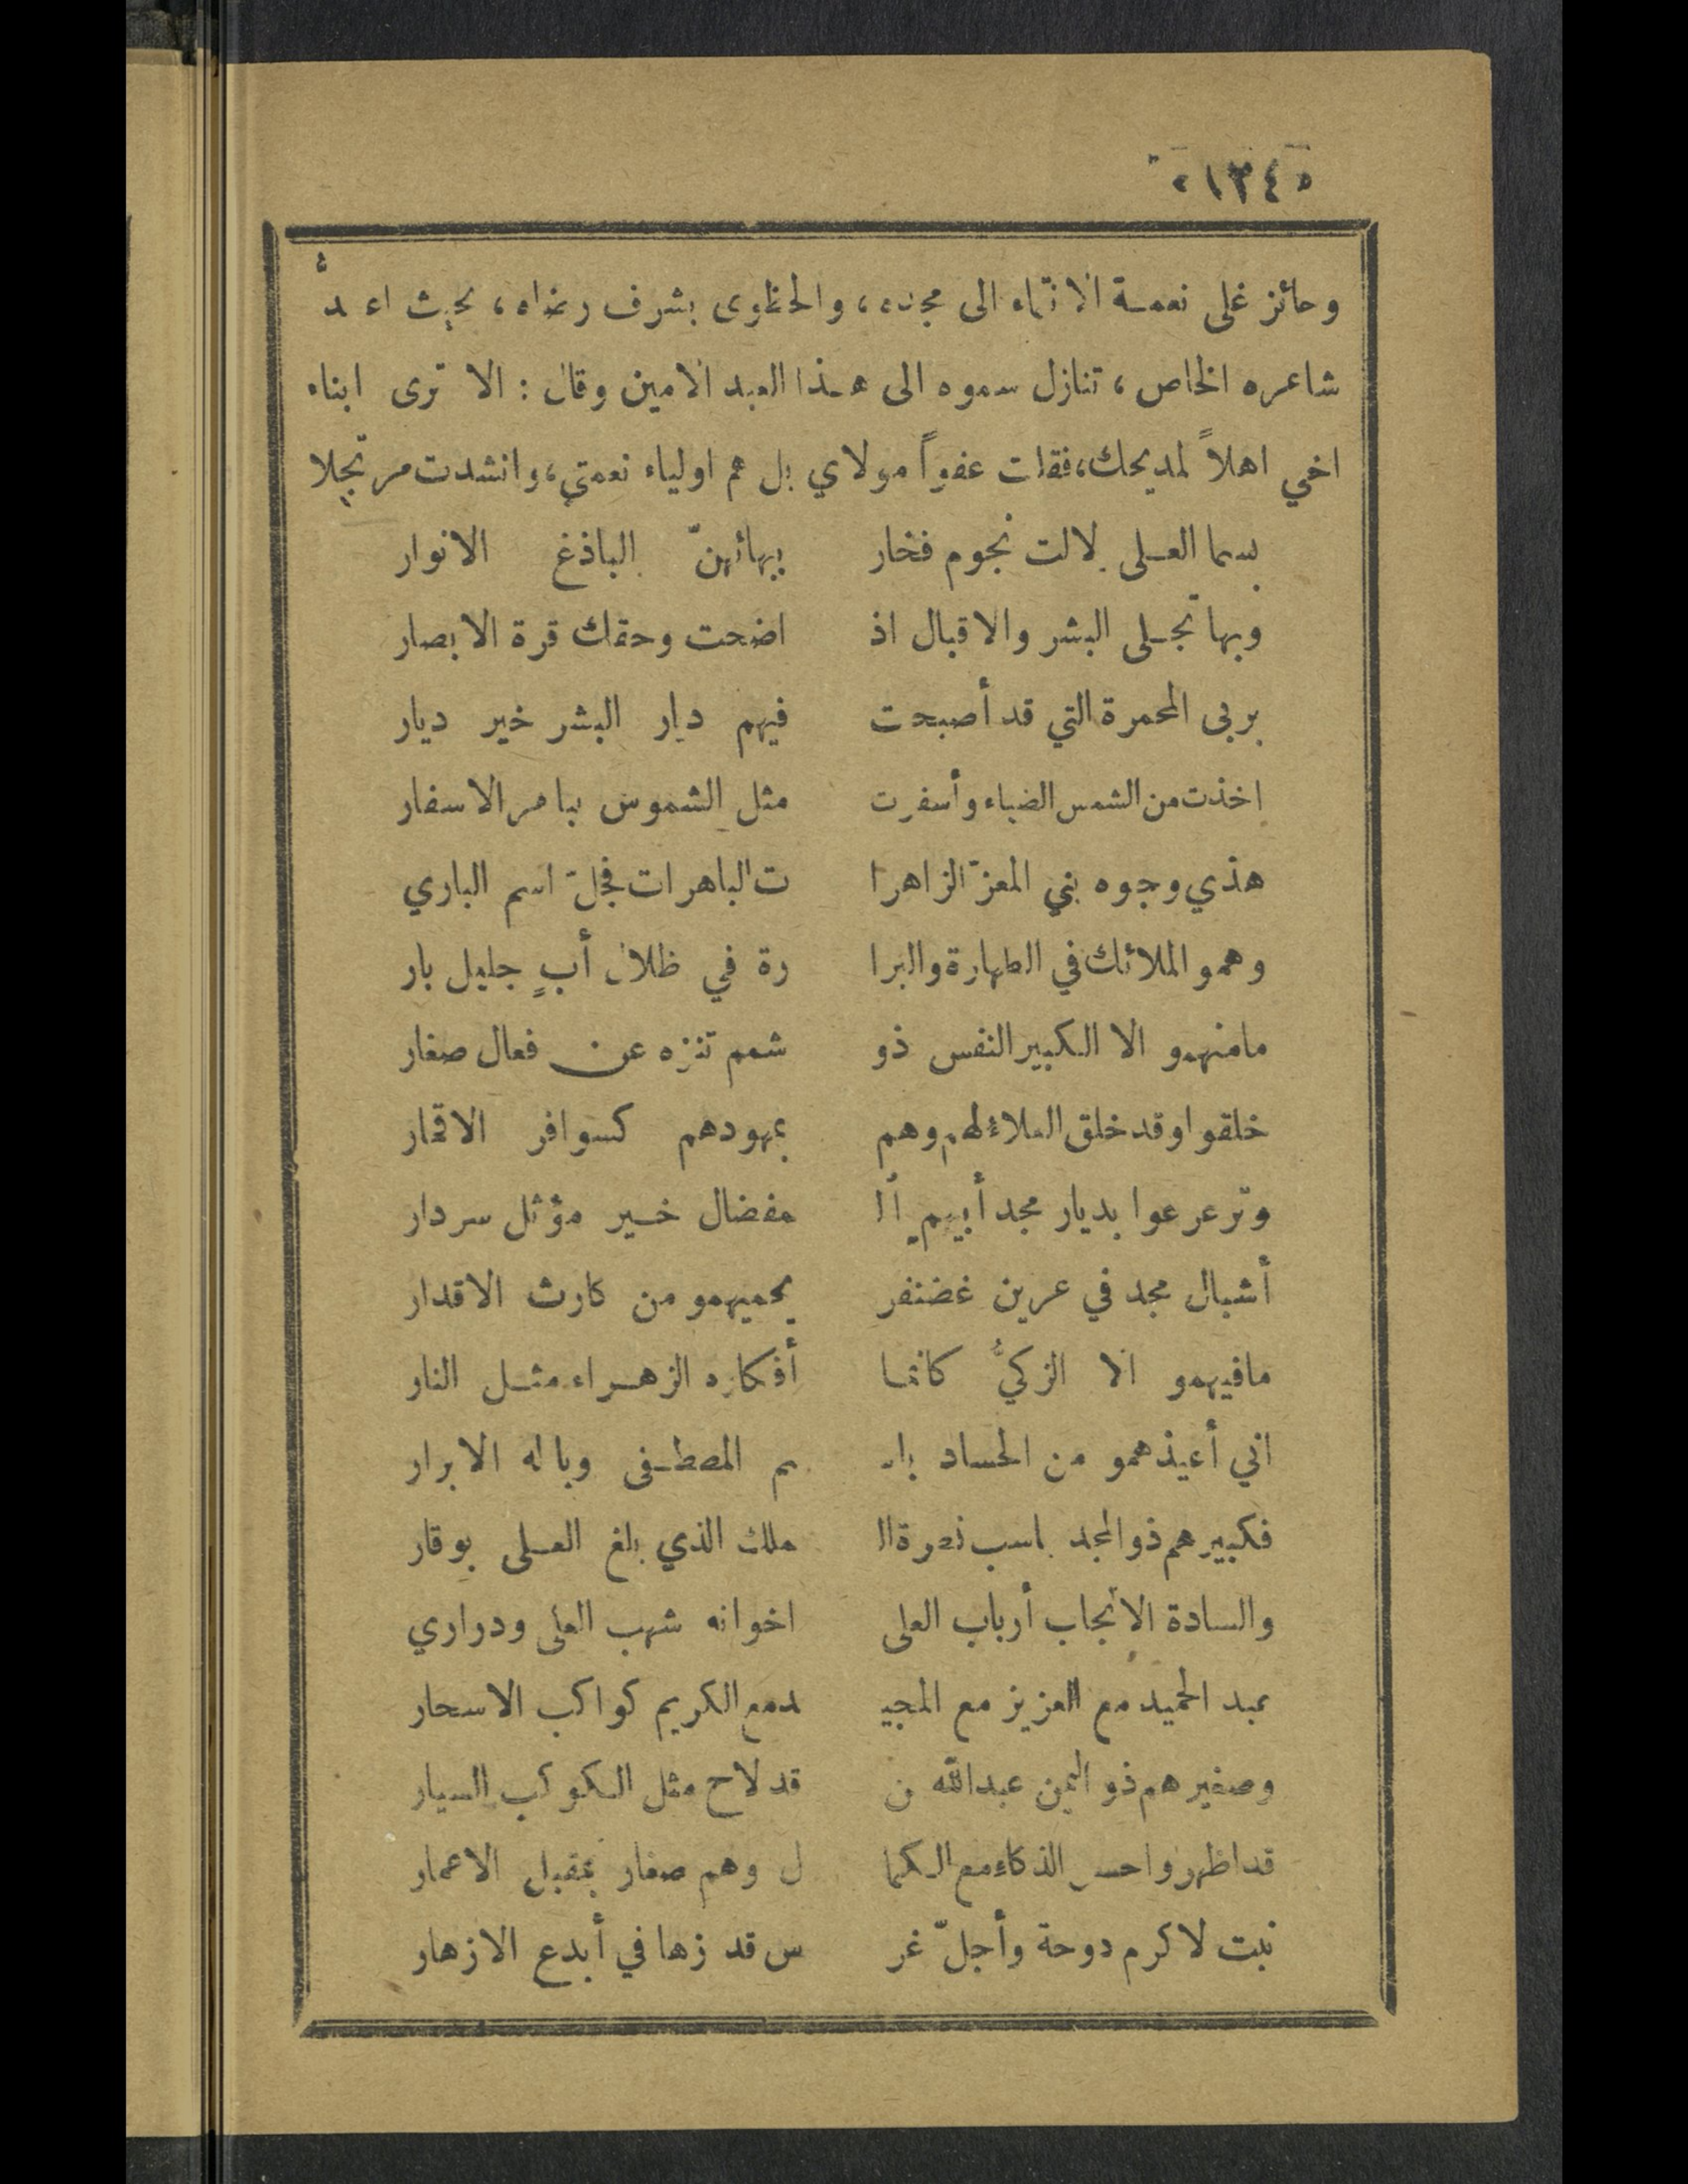 ١٣٤
وحائز غلى نعمة الانتماء الى مجده، والحظوى بشرف رضاه، بحيث اعدُّ
شاعره الخاص، تنازل سموه الى هذا العبد الامين وقال: الا ترى ابناء
اخي اهلاً لمديحك، فقلت عفواً مولاي بل هم اولياء نعمتي، وانشدت مرتجلا
بسما العلى لالت نجوم فخار ببهائهنّ الباذغ الانوار
وبها تجلى البشر والاقبال اذ اضحت وحقك قرة الابصار
بربى المحمرة التي قد أصبحت فيهم ديار البشر خير ديار
اخذت من الشمس الضياء وأسفرت مثل الشموس بباهر الاسفار
هذي وجوه بني المعزّ الزاهرا ت الباهرات فجلّ اسم الباري
وهمو الملائك في الطهارة والبرا رة في ظلال أبٍ جليل بار
مامنهمو الا الكبير النفس ذو شمم تنزه عن فعال صغار
خلقوا وقد خلق العلاء لهم وهم بمهودهم كسوافر الاقمار
وترعرعوا بديار مجد أبيهم ال مفضال خير مؤثل سردار
أشبال مجد في عرين غضنفر يحميهمو من كارث الاقدار
مافيهمو الا الزكيُّ كانما أفكاره الزهراء مثل النار
اني أعيذهمو من الحساد باسـ ـم المصطفى وباله الابرار
فكبيرهم ذو المجد باسب نصرة ال ملك الذي بلغ العلى بوقار
والسادة الانجاب أرباب العلى اخوانه شهب العلى ودراري
عبد الحميد مع العزيز مع المجيـ ـد مع الكريم كواكب الاسحار
وصغيرهم ذو اليمن عبدالله من قد لاح مثل الكوكب السيار
قد اظهروا حسن الذكاء مع الكما ل وهم صغار بمقبل الاعمار
نبت لاكرم دوحة وأجلّ غر س قد زها في أبدع الازهار